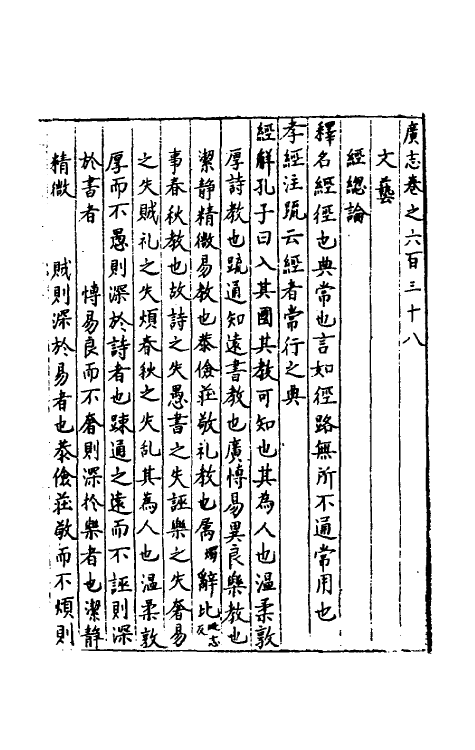 廣志卷之六百三十八
文藝
經總論
釋名經徑也典常也言如徑路無所不通常用也
孝經注疏云經者常行之典
經解孔子曰入其國其教可知也其為人也溫柔敦
厚詩教也疏通知遠書教也廣愽易異良樂教也
潔静精微易教也恭儉莊敬礼教也属辭比
事春秋教也故詩之失愚書之失誣樂之失奢易
之失賊礼之失煩春秋之失乱其為人也温柔敦
厚而不愚則深於詩者也踈通之遠而不誣則深
於書者 愽易良而不奢則深於樂者也潔静
精微 賊則深於易者也恭儉莊敬而不煩則